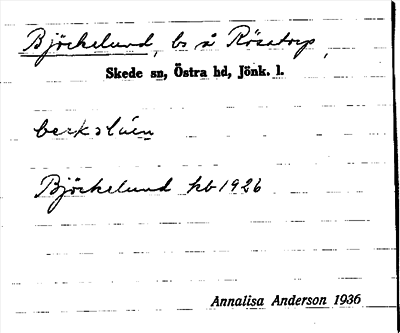 Björkelund, ls å Rösatorp,
Skede sn, Östra hd, Jönk. l.
Björkelund kb 1926
Annalisa Anderson 1936